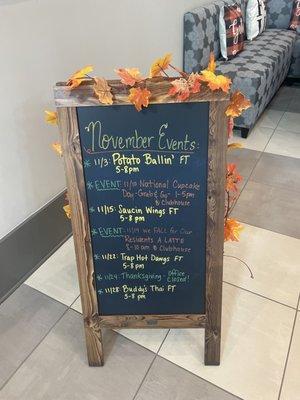 November Events:
* 11/3: Potato Ballin' FT
5-8pm
* EVENT: 11/10 National Cupcake
Day - Grab & Go @
Clubhouse
* 11/15: Saucin Wings FT
5-8pm
* EVENT: 11/19 We FALL for our
Residents A LATTE
@ Clubhouse
* 11/22: Trap Hot Dawgs FT
5-8 pm
* 11/24: Thanksgiving - Office
Closed!
* 11/28: Buddy's Thai FT
5-8 pm